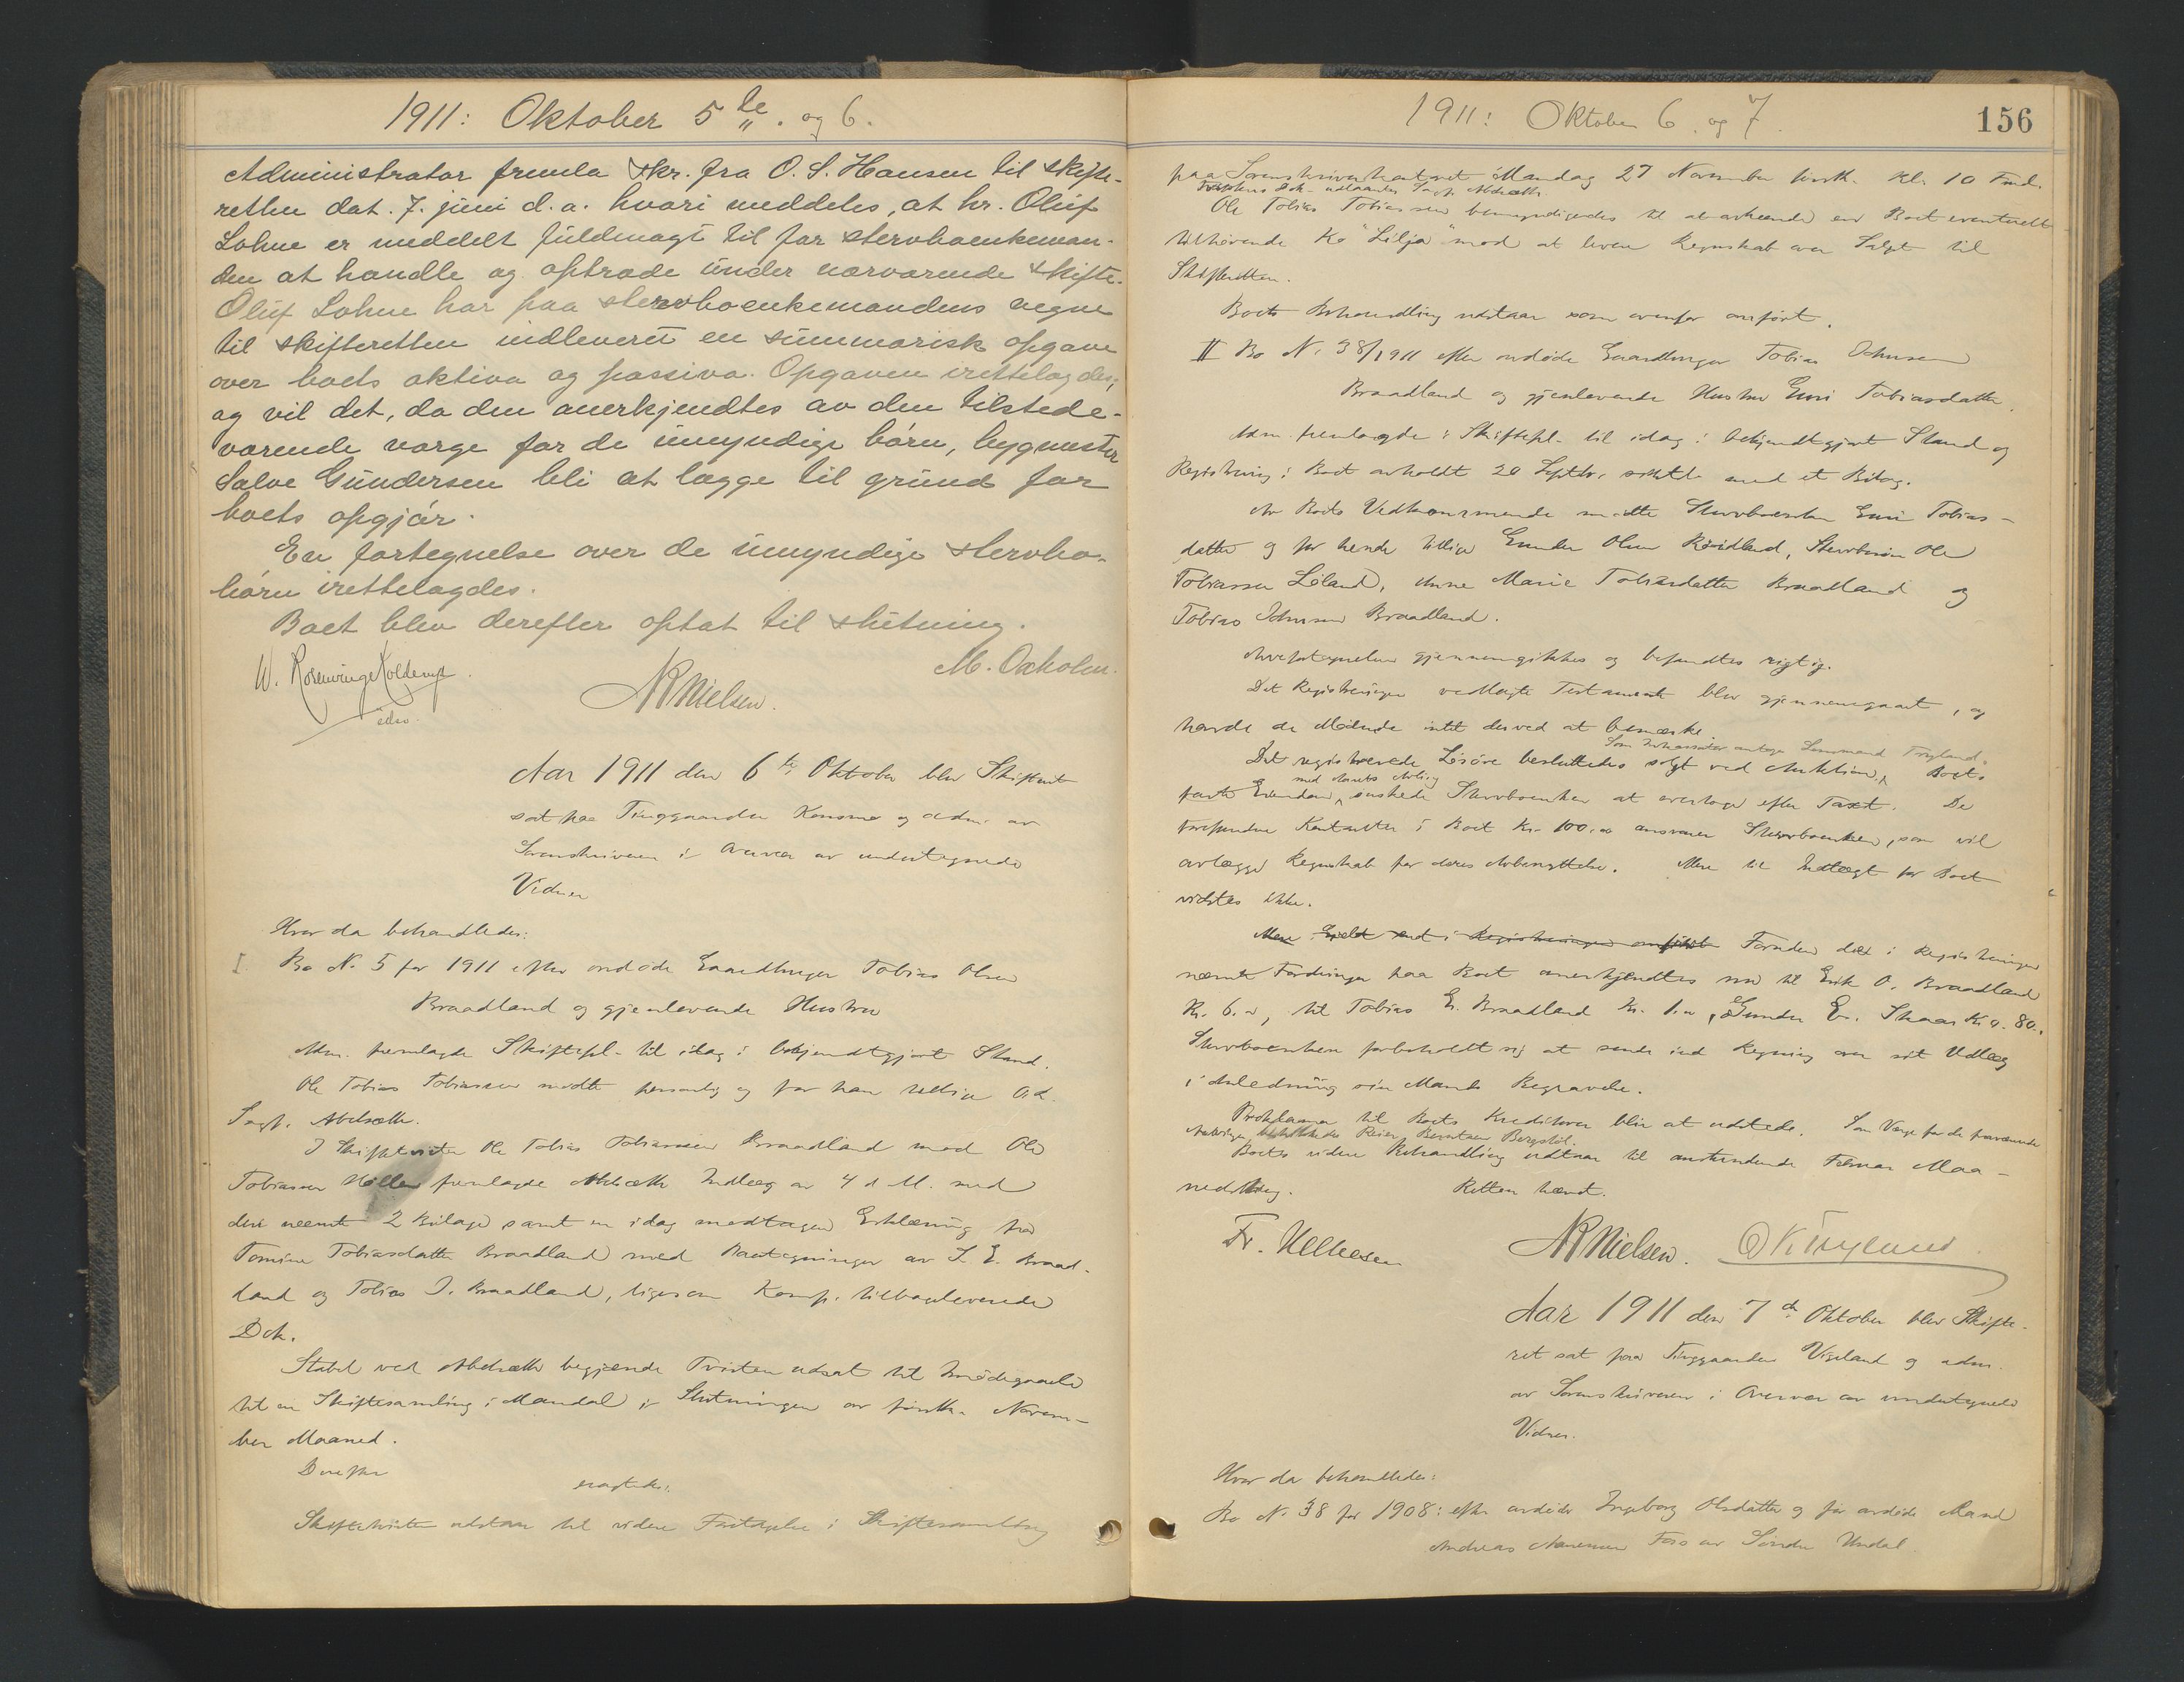 1911: Oktober 5te. og 6.
Administrator fremla skr. fra O. S. Hansen til skifte-
retten dat. 7. juni d. a. hvori meddeles, at hr. Oluf
Lohne er meddelt fuldmagt til for stervboenkeman-
den at handle og optræde under nærværende skifte.
Oluf Lohne har paa stervboenkemandens vegne
til skifteretten indleveret en summarisk opgave
over boets aktiva og passiva. Opgaven irettelagdes,
og vil det, da den anerkjendtes av den tilstede-
værende værge for de umyndige børn, bygmester
Salve Gundersen bli at lægge til grund for
boets opgjør.
En fortegnelse over de umyndige stervbo-
børn irettelagdes.
Boet blev derefter optat til slutning.
W. Rosenvinge Kolderup
NRNielsen.
M. Oxholm.
Aar 1911 den 6te Oktober blev Skifteret
sat paa Tinggaarden Konsmo og adm. av
Sorenskriveren i Overvær av undertegnede
Vidner
Hvor da behandledes:
I. Bo N. 5 for 1911 efter avdøde Gaardbruger Tobias Olsen
Braadland og gjenlevende Hustru
Adm. fremlagde Skiftepl. til idag i bekjendtgjort Stand.
Ole Tobias Tobiassen mødte personlig og for ham tillige O.r.
Sagf. Abelsæth.
I Skiftetvisten Ole Tobias Tobiassen Braadland mod Ole
Tobiassen fremlagde Abelsæth Indlæg av 4 d. M. med
deri nævnte 2 Bilage samt en idag modtagen Erklæring fra
Tomine Tobiasdatter Braadland med Paategninger av L. E. Braad-
land og Tobias J. Braadland, ligesom Komp. tilbageleverede
Dok.
Stabel ved Abelsæth begjærede Tvisten udsat til Imødegaaelse
til en Skiftesamling i Mandal i Slutningen av førstk. Novem-
ber Maaned.
Derefter
eragtedes:
Skiftetvisten utstaar til videre Foretagelse i Skiftesamling
1911: Oktober 6. og 7.
156
paa Sorenskriverkontoret Mandag 27 November førstk. Kl. 10 Fmd.
Tvistens Dok. utlaantes Sagf. Abelsæth.
Ole Tobias Tobiassen bemyndigedes til at avhænde en Boet eventuelt
tilhørende Ko "Lilja" mod at levere Regnskab over Salget til
Skifteretten.
Boets Behandling utstaar som ovenfor anført.
II Bo N. 38/1911 efter avdøde Gaardbruger Tobias Johnsen
Braadland og gjenlevende Hustru Guri Tobiasdatter.
Adm. fremlagde Skiftepl. til idag i bekjendtgjort Stand og
Registrering i Boet avholdt 20 Septbr. sidstl. med et Bilag.
Av Boets Vedkommende mødte Stervboenken Guri Tobias-
datter og for hende tillige Gunder Olsen Røidland, Stervbosøn Ole
Tobiassen Løland, Anne Marie Tobiasdatter Braadland og
Tobias Johnsen Braadland.
Arvefortegnelsen gjennemgikkes og befandtes rigtig.
Det Registreringen vedlagte Testamente blev gjennemgaaet, og
havde de Mødende intet derved at bemærke.
Som Inkassator antages Lensmand Tryland.
Det registrerede Løsøre besluttedes solgt ved Auktion, Boets
med Aarets Avling
faste Eiendom, ønskede Stervboenken at overtage efter Taxt. De
forefundne Kontanter i Boet Kr. 100,00 ansvarer Stervboenken, som vil
avlægge Regnskab for deres Avbenyttelse. Mere til Indtægt for Boet
vidstes ikke.
Mere Gjæld end i Registreringen anført Foruden det i Registreringen
nævnte Fordringer paa Boet anerkjendtes nu til Erik O. Braadland
Kr. 6.00, til Tobias E. Braadland Kr. 1.00, Gunder E. Skaar Kr 0.80.
Stervboenken forbeholdt sig at sende ind Regning over sit Utlæg
i Anledning sin Mands Begravelse.
Proklama til Boets Kreditorer blir at udstede. Som Værge for de fraværende
Arvinger beskikkedes Reier Berntsen Bergstøl.
Boets videre Behandling udstaar til anstundende Februar Maa-
nedsting. Retten hævet.
Fr. Uelkesen
NRNielsen.
O K Tryland.
Aar 1911 den 7de Oktober blev Skifte-
ret sat paa Tinggaarden Vigeland og adm.
av Sorenskriveren i Overvær av undertegnede
Vidner.
Hvor da behandledes:
Bo N. 38 for 1908: efter avdøde Ingeborg Olsdatter og før avdøde Mand
Andreas Foss av Søndre Undal.